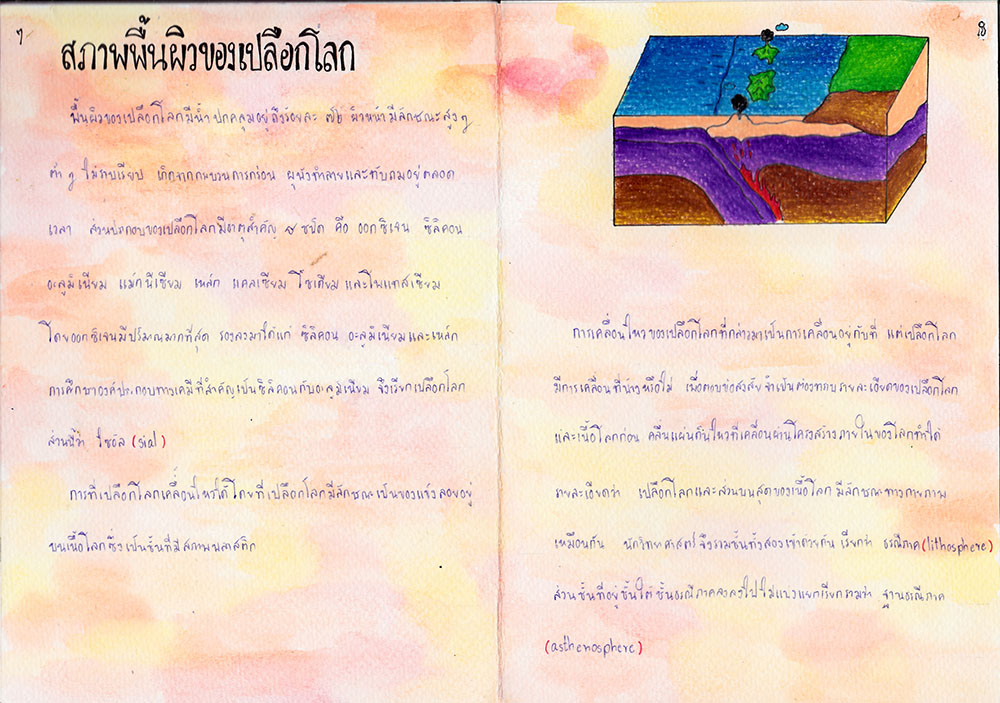 ๗
สภาพพื้นผิวของเปลือกโลก
พื้นผิวของเปลือกโลกมีน้ำปกคลุมอยู่ถึงร้อยละ ผิวหน้ามีลักษณะสูง ๆ
ต่ำ ๆ ไม่ราบเรียบ เกิดจากกระบวนการกร่อน ผุพังทำลายและทับถมอยู่ตลอด
เวลา ส่วนประกอบของเปลือกโลกมีธาตุสำคัญ ๘ ชนิด คือ ออกซิเจน ซิลิคอน
อะลูมิเนียม แมกนีเซียม เหล็ก แคลเซียม โซเดียม และโพแทสเซียม
โดยออกซิเจนมีปริมาณมากที่สุด รองลงมาได้แก่ ซิลิคอน อะลูมิเนียมและเหล็ก
การศึกษาองค์ประกอบทางเคมีที่สำคัญเป็นซิลิคอนกับอะลูมิเนียม จึงเรียกเปลือกโลก
ส่วนนี้ว่า ไซอัล (sial)
การที่เปลือกโลกเคลื่อนไหวได้โดยที่เปลือกโลกมีลักษณะเป็นของแข็งลอยอยู่
บนเนื้อโลกซึ่งเป็นชั้นที่มีสภาพพลาสติก
๘
การเคลื่อนไหวของเปลือกโลกที่กล่าวมาเป็นการเคลื่อนอยู่กับที่ แต่เปลือกโลก
มีการเคลื่อนที่บ้างหรือไม่ เพื่อตอบข้อสงสัย จำเป็นต้องทราบรายละเอียดของเปลือกโลก
และเนื้อโลกก่อน คลื่นแผ่นดินไหวที่เคลื่อนผ่านโครงสร้างภายในของโลกทำให้
รายละเอียดว่า เปลือกโลกและส่วนบนสุดของเนื้อโลก มีลักษณะทางกายภาพ
เหมือนกัน นักวิทยาศาสตร์จึงรวมชั้นทั้งสองเข้าด้วยกัน เรียกว่า ธรณีภาค (lithosphere)
ส่วนชั้นที่อยู่ชั้นใต้ชั้นธรณีภาคลงไปไม่แบ่งแยกเรียกรวมว่า ฐานธรณีภาค
(asthenosphere)